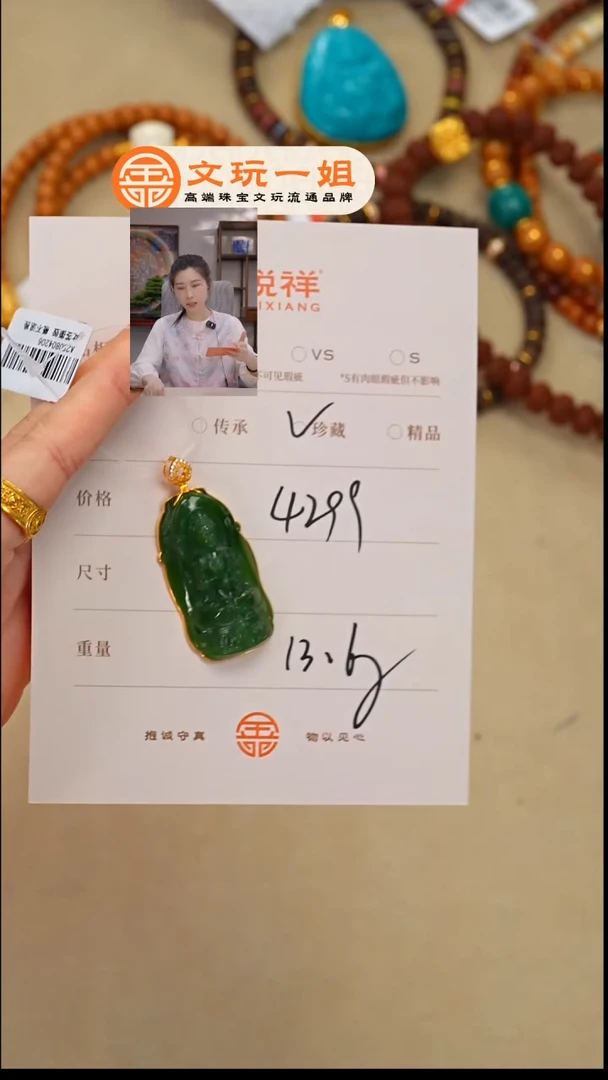 文玩一姐
高端珠宝文玩流通品牌
悦祥
IXIANG
VS
S
不可见瑕疵
*S有肉眼瑕疵但不影响
传承
珍藏
精品
价格
4299
尺寸
重量
13.6g
推诚守真
物以见心